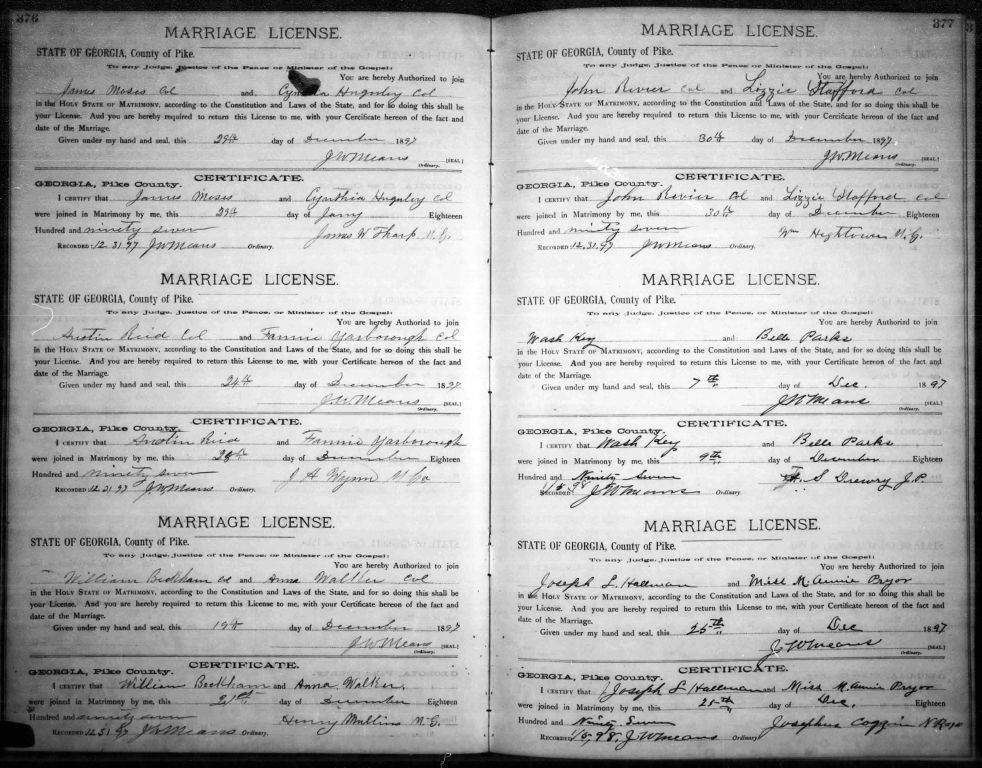 376
MARRIAGE LICENSE.
STATE OF GEORGIA, County of Pike.
To any Judge, Justice of the Peace or Minister of the Gospel:
You are hereby Authorized to join
James Moses Col and Cynthia Huguley Col
in the HOLY STATE OF MATRIMONY, according to the Constitution and Laws of the State, and for so doing this shall be
your License. And you are hereby required to return this License to me, with your Certificate hereon of the fact and
date of the Marriage.
Given under my hand and seal, this 29th day of December 1897
J W Means [SEAL]
Ordinary.
CERTIFICATE.
GEORGIA, Pike County.
I CERTIFY that James Moses and Cynthia Huguley Col
were joined in Matrimony by me, this 29th day of Eighteen
Hundred and ninety seven James W Tharp M.G.
RECORDED 12.31.97 J W Means Ordinary.
MARRIAGE LICENSE.
STATE OF GEORGIA, County of Pike.
To any Judge, Justice of the Peace, or Minister of the Gospel:
You are hereby Authorized to join
Austin Reid Col and Fannie Yarborough Col
in the HOLY STATE OF MATRIMONY, according to the Constitution and Laws of the State, and for so doing this shall be
your License. And you are hereby required to return this License to me, with your Certificate hereon of the fact and
date of the Marriage.
Given under my hand and seal, this 24th day of December 1897
J. W Means [SEAL]
Ordinary.
CERTIFICATE.
GEORGIA, Pike County.
I CERTIFY that Austin Reid and Fannie Yarborough
were joined in Matrimony by me, this day of December Eighteen
Hundred and ninety seven J H Wynn
RECORDED 12.31.97 J W Means Ordinary.
MARRIAGE LICENSE.
STATE OF GEORGIA, County of Pike.
To any Judge, Justice of the Peace, or Minister of the Gospel:
You are hereby Authorized to join
William Beckham Col and Anna Walker Col
in the HOLY STATE OF MATRIMONY, according to the Constitution and Laws of the State, and for so doing this shall be
your License. And you are hereby required to return this License to me, with your Certificate hereon of the fact and
date of the Marriage.
Given under my hand and seal, this day of December 1897
J. W Means [SEAL]
Ordinary.
CERTIFICATE.
GEORGIA, Pike County.
I CERTIFY that William Beckham and Anna Walker
were joined in Matrimony by me, this 21st day of December Eighteen
Hundred and ninety seven Henry Mullins M.G.
RECORDED 12.31.97 J W Means Ordinary.
377
MARRIAGE LICENSE.
STATE OF GEORGIA, County of Pike.
To any Judge, Justice of the Peace, or Minister of the Gospel:
You are hereby Authorized to join
John Rivier Col and Lizzie Stafford Col
in the HOLY STATE OF MATRIMONY, according to the Constitution and Laws of the State, and for so doing this shall be
your License. And you are hereby required to return this License to me, with your Certificate hereon of the fact and
date of the Marriage.
Given under my hand and seal, this 30th day of December 1897
J W. Means [SEAL]
Ordinary.
CERTIFICATE.
GEORGIA, Pike County.
I CERTIFY that John Rivier Col and Lizzie Stafford Col
were joined in Matrimony by me, this 30th day of December Eighteen
Hundred and ninety seven Wm Hightower M.G.
RECORDED 12.31.97 J W Means Ordinary.
MARRIAGE LICENSE.
STATE OF GEORGIA, County of Pike.
To any Judge, Justice of the Peace, or Minister of the Gospel:
You are hereby Authorized to join
Wash Key and Belle Parks
in the HOLY STATE OF MATRIMONY, according to the Constitution and Laws of the State, and for so doing this shall be
your License. And you are hereby required to return this License to me, with your Certificate hereon of the fact and
date of the Marriage.
Given under my hand and seal, this 7th day of Dec. 1897
J W Means [SEAL]
Ordinary.
CERTIFICATE.
GEORGIA, Pike County.
I CERTIFY that Wash Key and Belle Parks
were joined in Matrimony by me, this 9th day of December Eighteen
Hundred and Ninety Seven S Drewry J.P.
RECORDED J. W Means Ordinary.
MARRIAGE LICENSE.
STATE OF GEORGIA, County of Pike.
To any Judge, Justice of the Peace, or Minister of the Gospel:
You are hereby Authorized to join
Joseph L. Halleman and Miss M. Annie Pryor
in the HOLY STATE OF MATRIMONY, according to the Constitution and Laws of the State, and for so doing this shall be
your License. And you are hereby required to return this License to me, with your Certificate hereon of the fact and
date of the Marriage.
Given under my hand and seal, this 25th day of Dec 1897
J. W Means [SEAL]
Ordinary.
CERTIFICATE.
GEORGIA, Pike County.
I CERTIFY that Joseph L Halleman and Miss M. Annie Pryor
were joined in Matrimony by me, this 25th day of Dec. Eighteen
Hundred and Ninety Seven Josephus
RECORDED 1/5, 98. J. W Means Ordinary